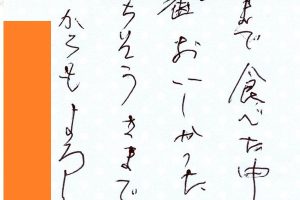 まで食べた中
番おいしかった
ちそうさまで
からもよろし